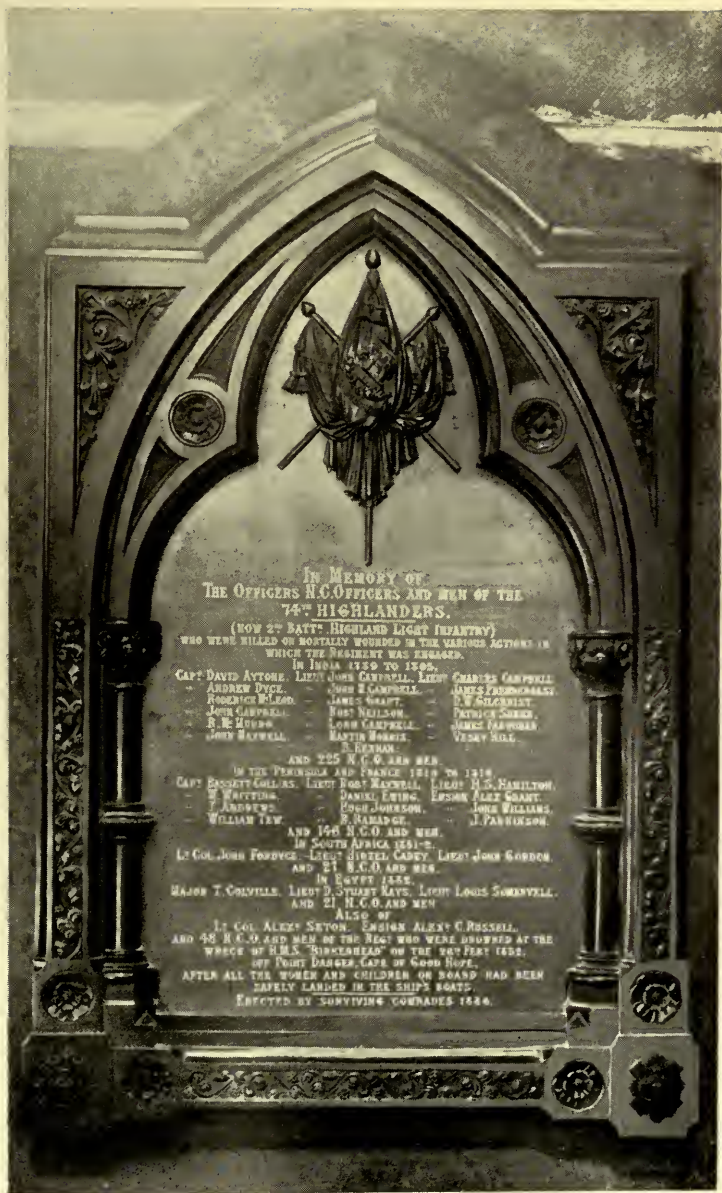 IN MEMORY OF
THE OFFICERS N.C.OFFICERS AND MEN OF THE
74TH HIGHLANDERS.
(NOW 2ND BATTN. HIGHLAND LIGHT INFANTRY)
WHO WERE KILLED OR MORTALLY WOUNDED IN THE VARIOUS ACTIONS IN
WHICH THE REGIMENT WAS ENGAGED.
IN INDIA 1789 TO 1805.
CAPT DAVID AYTONE. LIEUT JOHN CAMPBELL. LIEUT CHARLES CAMPBELL
" ANDREW DYCE. " JOHN M CAMPBELL. " JAMES
" RODERICK MCLEOD. " JAMES GRANT. " D.W. GILCHRIST.
" JOHN CAMPBELL. " ROBT NEILSON. " PATRICK
" R. MC MURDO. " LORN CAMPBELL. " JAMES FARQUHAR
" JOHN MAXWELL. " MARTIN MORRIS. " VESEY HILL.
B. KERNAN.
AND 225 N.C.O. AND MEN.
IN THE PENINSULA AND FRANCE 1810 TO 1814.
CAPT BASSETT COLLINS. LIEUT ROBT MAXWELL. LIEUT H.S. HAMILTON.
" W. WHITTING. " DANIEL EWING. ENSIGN ALEX GRANT.
" T. ANDREWS. " HUGH JOHNSON. " JOHN WILLIAMS.
" WILLIAM TEW. " B. RAMADGE. " J. PARKINSON.
AND 146 N.C.O. AND MEN.
IN SOUTH AFRICA 1851-2.
LT COL JOHN FORDYCE. LIEUT CAREY. LIEUT JOHN GORDON.
AND 27 N.C.O. AND MEN.
IN EGYPT 1882.
MAJOR T. COLVILLE. LIEUT D. STUART KAYS. LIEUT LOUIS SOMERVELL.
AND 21. N.C.O. AND MEN
ALSO OF
LT COL ALEXR SETON. ENSIGN ALEXR C. RUSSELL.
AND 48 N.C.O. AND MEN OF THE REGT WHO WERE DROWNED AT THE
WRECK OF H.M.S. "BIRKENHEAD" ON THE 26TH FEBY 1852.
OFF POINT DANGER, CAPE OF GOOD HOPE.
AFTER ALL THE WOMEN AND CHILDREN ON BOARD HAD BEEN
SAFELY LANDED IN THE SHIPS BOATS.
ERECTED BY SURVIVING COMRADES 1884.